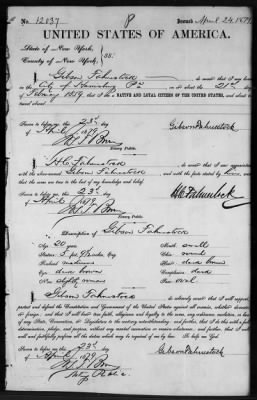 No. 12037 8 Issued April 24, 1879
UNITED STATES OF AMERICA.
State of New York,
County of New York, } ss:
I, Gibson Fahnestock do swear that I was born
in the City of Harrisburg Pa on or about the 21st day
of Feby 1859 that I am a NATIVE AND LOYAL CITIZEN OF THE UNITED STATES, and about to travel
abroad.
Sworn to before me, this 23d
day of April 1879
Gibson Fahnestock
Notary Public.
I, H C Fahnestock do swear that I am acquainted
with the above-named Gibson Fahnestock and with the facts stated by him, and
that the same are true to the best of my knowledge and belief.
Sworn to before me, this 23d
day of April 1879
H C Fahnestock
Notary Public.
Description of Gibson Fahnestock
Age 20 years Mouth small
Stature 5 feet inches Eng. Chin
Forehead medium Hair dark brown
Eyes dark brown Complexion dark
Nose slightly Face oval
I, Gibson Fahnestock do solemnly swear that I will support,
protect and defend the Constitution and Government of the United States against all enemies, whether domestic
or foreign; and that I will bear true faith, allegiance and loyalty to the same, any ordinance, resolution or law
of any State, Convention or Legislature to the contrary notwithstanding; and further, that I do this with a full
determination, pledge, and purpose, without any mental reservation or evasion whatsoever; and further, that I
will well and faithfully perform all the duties which may be required of me by law. So help me God.
Sworn to before me, this 23d
day of April 1879
Gibson Fahnestock
Notary Public